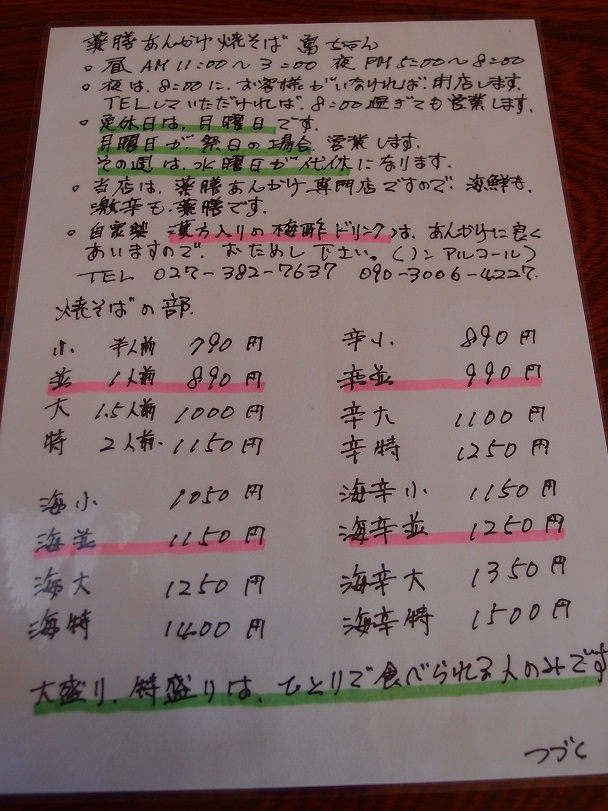 薬膳あんかけ焼そば 勇ちゃん
○ 昼 AM 11:00〜3:00 夜 PM 5:00〜8:00
○ 夜は、8:00に、お客様がいなければ、閉店します。
TELしていただければ、8:00過ぎても営業します。
○ 定休日は、月曜日です。
月曜日が、祭日の場合、営業します。
その週は、水曜日が代休になります。
○ 当店は、薬膳あんかけ専門店ですので、海鮮も、
激辛も、薬膳です。
○ 自家製 漢方入りの梅酢ドリンクは、あんかけに良く
あいますので、おためし下さい。(ノンアルコール)
TEL 027-382-7637 090-3006-4227.
焼そばの部.
小 半人前 790円
並 1人前 890円
大 1.5人前 1000円
特 2人前. 1150円
辛小 890円
辛並 990円
辛大 1100円
辛特 1250円
海小 1050円
海並 1150円
海大 1250円
海特 1400円
海辛小 1150円
海辛並 1250円
海辛大 1350円
海辛特 1500円
大盛り、特盛りは、ひとりで食べられる人のみです
つづく